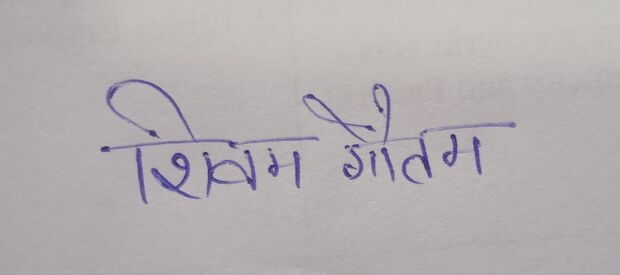 शिवम गौतम